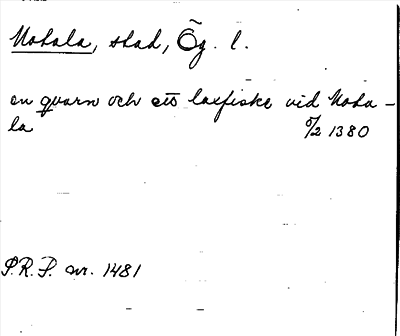 Motala, stad, Ög. l.
en qvarn och ett laxfiske vid Mota-
la 5/2 1380
S.R.P. nr. 1481